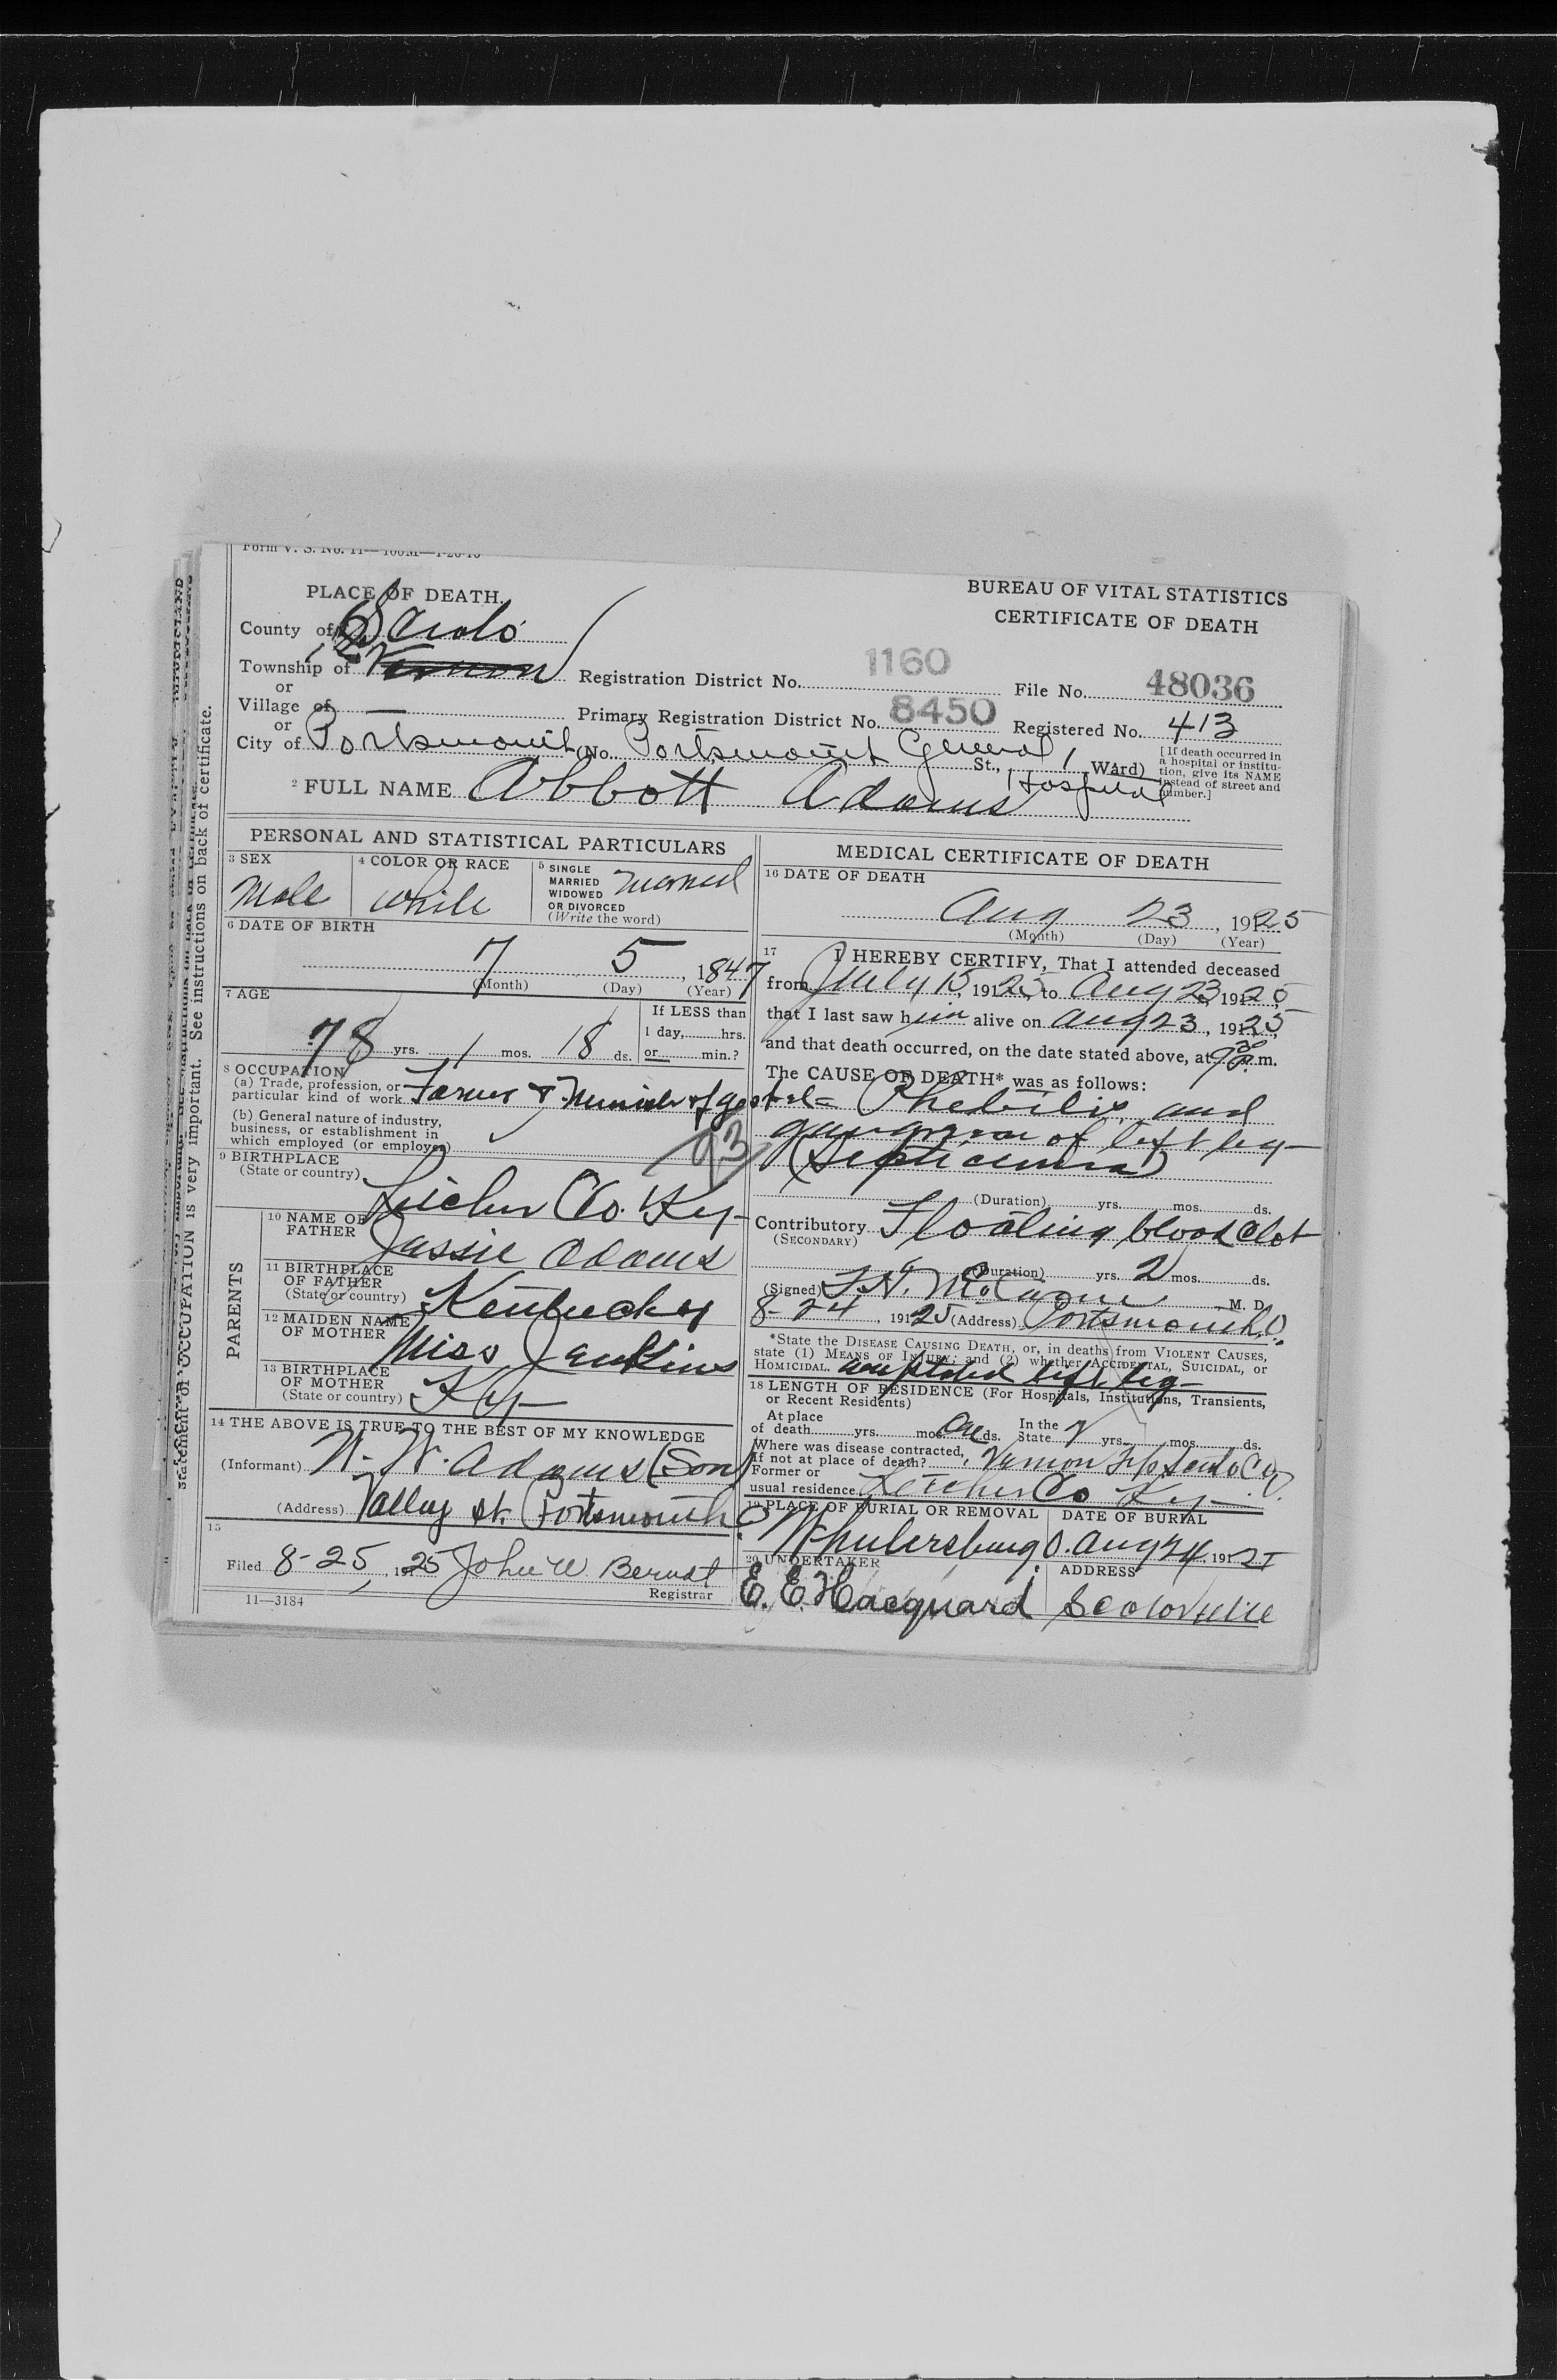 Form V. S. No. 11—100M—1-20-10
PLACE OF DEATH.
BUREAU OF VITAL STATISTICS
CERTIFICATE OF DEATH
County of Scioto
Township of Vernon
Registration District No. 1160
File No. 48036
or
Village of —
Primary Registration District No. 8450
Registered No. 413
or
City of Portsmouth (No. Portsmouth General Hospital St., 1 Ward)
[If death occurred in a hospital or institution, give its NAME instead of street and number.]
2 FULL NAME Abbott Adams
PERSONAL AND STATISTICAL PARTICULARS
3 SEX
Male
4 COLOR OR RACE
White
5 SINGLE
MARRIED
WIDOWED
OR DIVORCED
(Write the word)
Married
6 DATE OF BIRTH
7 5, 1847
(Month) (Day) (Year)
7 AGE
78 yrs. 1 mos. 18 ds.
If LESS than
1 day, hrs.
or min.?
8 OCCUPATION
(a) Trade, profession, or
particular kind of work Farmer & Minister of gospel
(b) General nature of industry,
business, or establishment in
which employed (or employer)
93
9 BIRTHPLACE
(State or country)
Letcher Co. Ky
PARENTS
10 NAME OF
FATHER
Jessie Adams
11 BIRTHPLACE
OF FATHER
(State or country)
Kentucky
12 MAIDEN NAME
OF MOTHER
Miss Jenkins
13 BIRTHPLACE
OF MOTHER
(State or country)
Ky
14 THE ABOVE IS TRUE TO THE BEST OF MY KNOWLEDGE
(Informant) W. W. Adams (Son)
(Address) Valley St. Portsmouth O
15
Filed 8-25, 1925 John W. Berndt
Registrar
11—3184
MEDICAL CERTIFICATE OF DEATH
16 DATE OF DEATH
Aug 23, 1925
(Month) (Day) (Year)
17 I HEREBY CERTIFY, That I attended deceased
from July 15, 1925, to Aug 23 1925,
that I last saw him alive on Aug 23, 1925,
and that death occurred, on the date stated above, at 9 30 m.
The CAUSE OF DEATH* was as follows:
Phebilis and
gangrene of left leg
(Septicemia)
(Duration) yrs. mos. ds.
Contributory Floating blood clot
(SECONDARY)
(Duration) yrs. 2 mos. ds.
(Signed) M. D.
8-24, 1925 (Address) Portsmouth, O.
*State the DISEASE CAUSING DEATH, or, in deaths from VIOLENT CAUSES,
state (1) MEANS OF INJURY; and (2) whether ACCIDENTAL, SUICIDAL, or
HOMICIDAL. amputated left leg
18 LENGTH OF RESIDENCE (For Hospitals, Institutions, Transients,
or Recent Residents)
At place
of death yrs. mos. One ds.
In the
State yrs. mos. ds.
Where was disease contracted,
If not at place of death? Vernon Twp Scioto Co O.
Former or
usual residence Letcher Co Ky
19 PLACE OF BURIAL OR REMOVAL
Wheelersburg O.
DATE OF BURIAL
Aug 24, 1925
20 UNDERTAKER
E. E. Hacquard
ADDRESS
Sciotoville
statement of OCCUPATION is very important. See instructions on back of certificate.